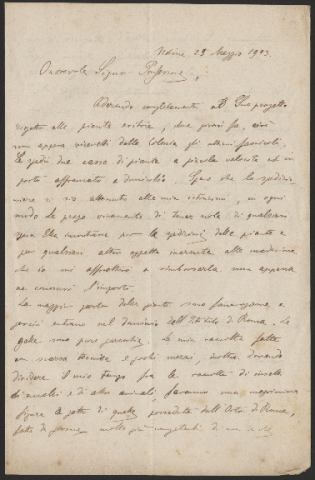 Udine 23 Maggio 1913.
Onorevole Signor Professore,
Aderendo completamente al Suo progetto
piante eritree, due giorni fa,
non appena ricevetti dalla Colonia gli ultimi fascicoli,
Le spedii due casse di piante a piccola velocità ed in
porto affrancato a domicilio. Spero che la spedizione
si sia attenuta alle mie istruzioni, in ogni
modo La prego vivamente di tener nota di qualsiasi
spesa Ella incontrasse per la spedizione delle piante e
per qualsiasi altro oggetto inerente alle medesime
che io mi affretterò a rimborsarla non appena
ne conosca l'importo.
La maggior parte delle piante sono fanerogame e
perciò entrano nel dominio dell'Istituto di Roma. Le
felci sono pure parecchie. La mia raccolta fatta
in scarsa e pochi mezzi, inoltre dovendo
dividere il mio tempo fra le raccolte di insetti
uccelli e di altri animali, faranno una
figura a petto di quelle possedute dall'Orto di Roma,
fatte da persone molto più competenti di me